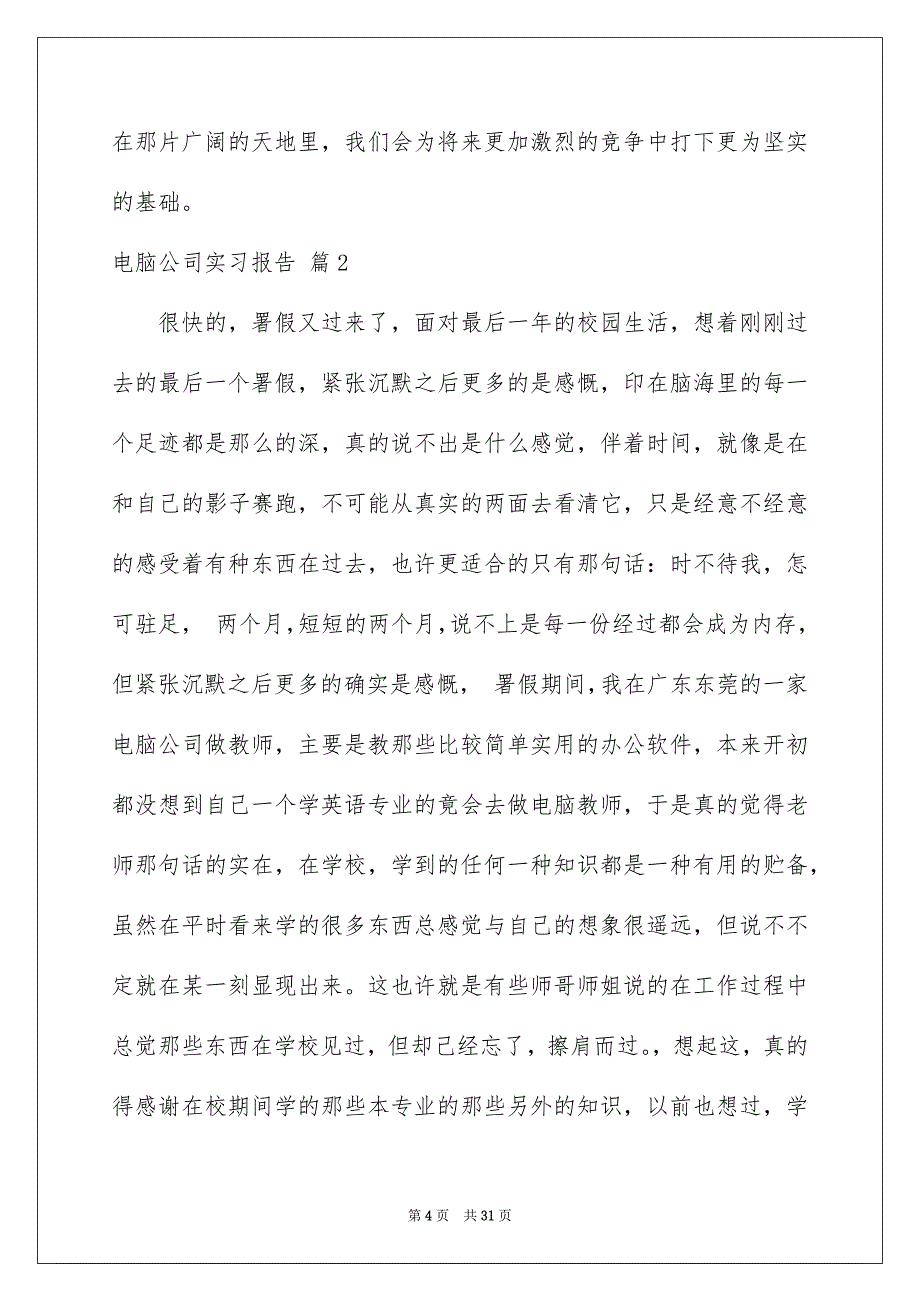 在那片广阔的天地里，我们会为将来更加激烈的竞争中打下更为坚实
的基础。
电脑公司实习报告 篇2
很快的，署假又过来了，面对最后一年的校园生活，想着刚刚过
去的最后一个署假，紧张沉默之后更多的是感慨，印在脑海里的每一
个足迹都是那么的深，真的说不出是什么感觉，伴着时间，就像是在
和自己的影子赛跑，不可能从真实的两面去看清它，只是经意不经意
的感受着有种东西在过去，也许更适合的只有那句话：时不待我，怎
可驻足， 两个月，短短的两个月，说不上是每一份经过都会成为内存，
但紧张沉默之后更多的确实是感慨， 署假期间，我在广东东莞的一家
电脑公司做教师，主要是教那些比较简单实用的办公软件，本来开初
都没想到自己一个学英语专业的竟会去做电脑教师，于是真的觉得老
师那句话的实在，在学校，学到的任何一种知识都是一种有用的贮备，
虽然在平时看来学的很多东西总感觉与自己的想象很遥远，但说不不
定就在某一刻显现出来。这也许就是有些师哥师姐说的在工作过程中
总觉那些东西在学校见过，但却己经忘了，擦肩而过。，想起这，真的
得感谢在校期间学的那些本专业的那些另外的知识，以前也想过，学
第 4 页 共 31 页